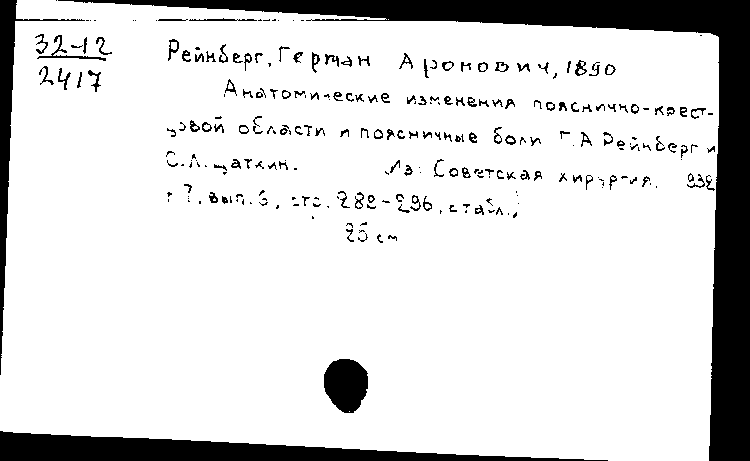 32-12
2417
Рейнберг, Герман Аронович, 1890
Анатомические изменения пояснично-крест-
цовой области и поясничные боли Г.А Рейнберг и
С.Л. Щаткин. Из: Советская хирургия. 932
т 7, вып. 6, стр. 282-296, с табл.,
25 см